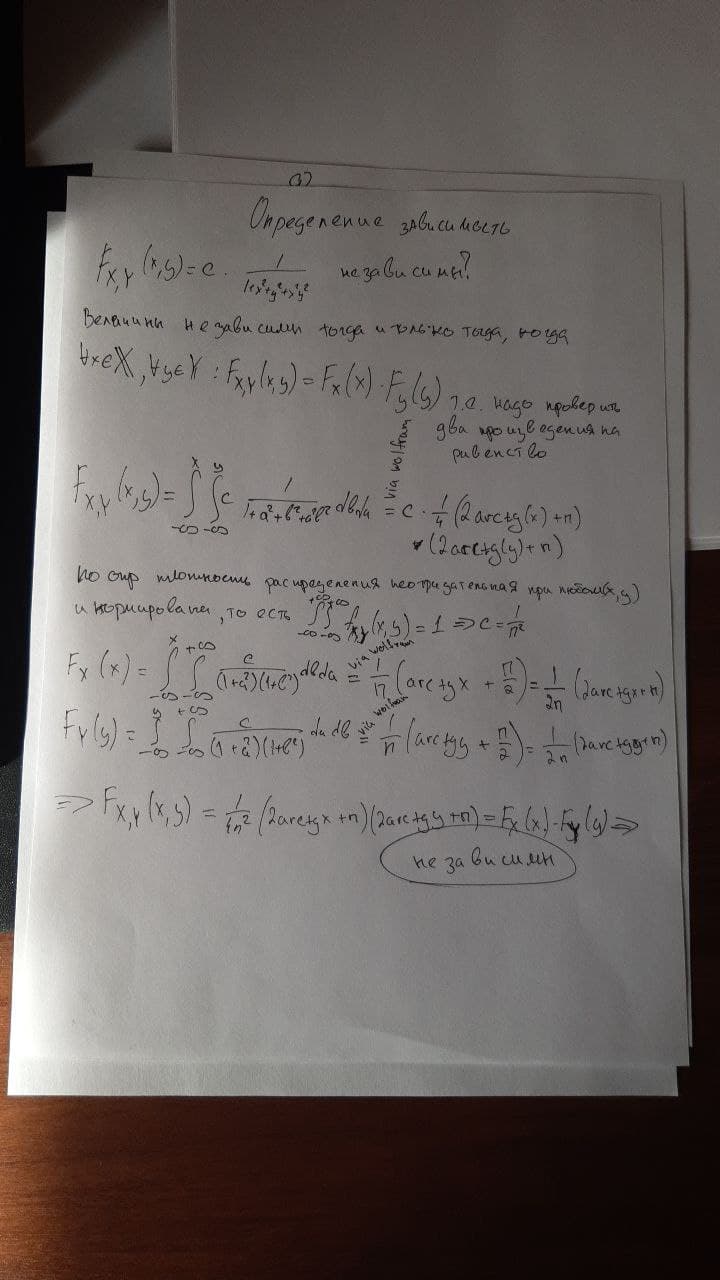 Определение зависимость
F_{X,Y}(x,y) = c · 1/(1+x²+y²+x²y²) независимы?
Величины независимы тогда и только тогда, когда
∀x∈X, ∀y∈Y : F_{X,Y}(x,y) = F_X(x) · F_y(y) т.е. надо проверить
два произведения на
равенство
F_{X,Y}(x,y) = ∫_{-∞}^{x} ∫_{-∞}^{y} c 1/(1+a²+b²+a²b²) db da = via wolfram c · 1/4 (2arctg(x)+π)
· (2arctg(y)+π)
По опр плотность распределения неотрицательная при любом (x,y)
и нормирована, то есть ∫_{-∞}^{+∞} ∫_{-∞}^{+∞} f_{X,Y}(x,y) = 1 ⇒ c = 1/π²
F_X(x) = ∫_{-∞}^{x} ∫_{-∞}^{+∞} c/((1+a²)(1+b²)) db da = via wolfram 1/π (arctgx + π/2) = 1/2π (2arctgx+π)
F_Y(y) = ∫_{-∞}^{y} ∫_{-∞}^{+∞} c/((1+a²)(1+b²)) da db = via wolfram 1/π (arctgy + π/2) = 1/2π (2arctgy+π)
⇒ F_{X,Y}(x,y) = 1/4π² (2arctgx+π)(2arctgy+π) = F_X(x) · F_Y(y) ⇒
независимы